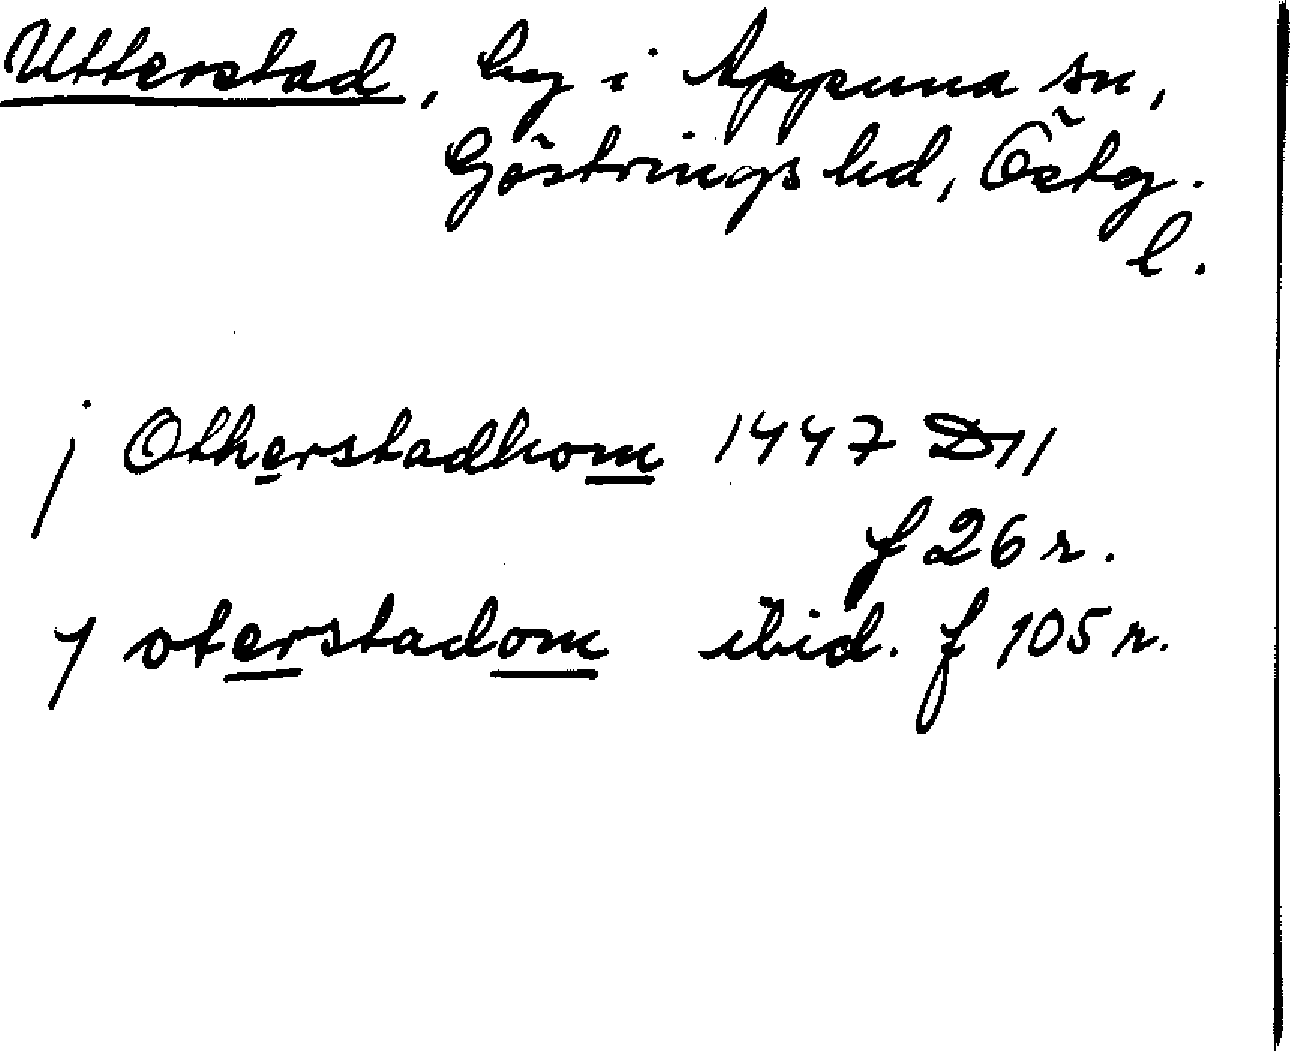 Utterstad, by i Appuna sn,
Göstrings hd, Östg.
l.
j Otherstadhom 1447 D11
f 26 r.
j oterstadom ibid. f 105 r.